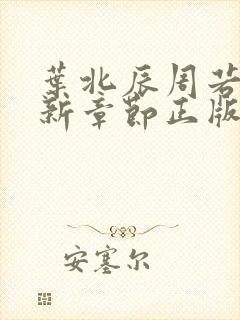 葉北辰周若
新章節正版
安塞尔